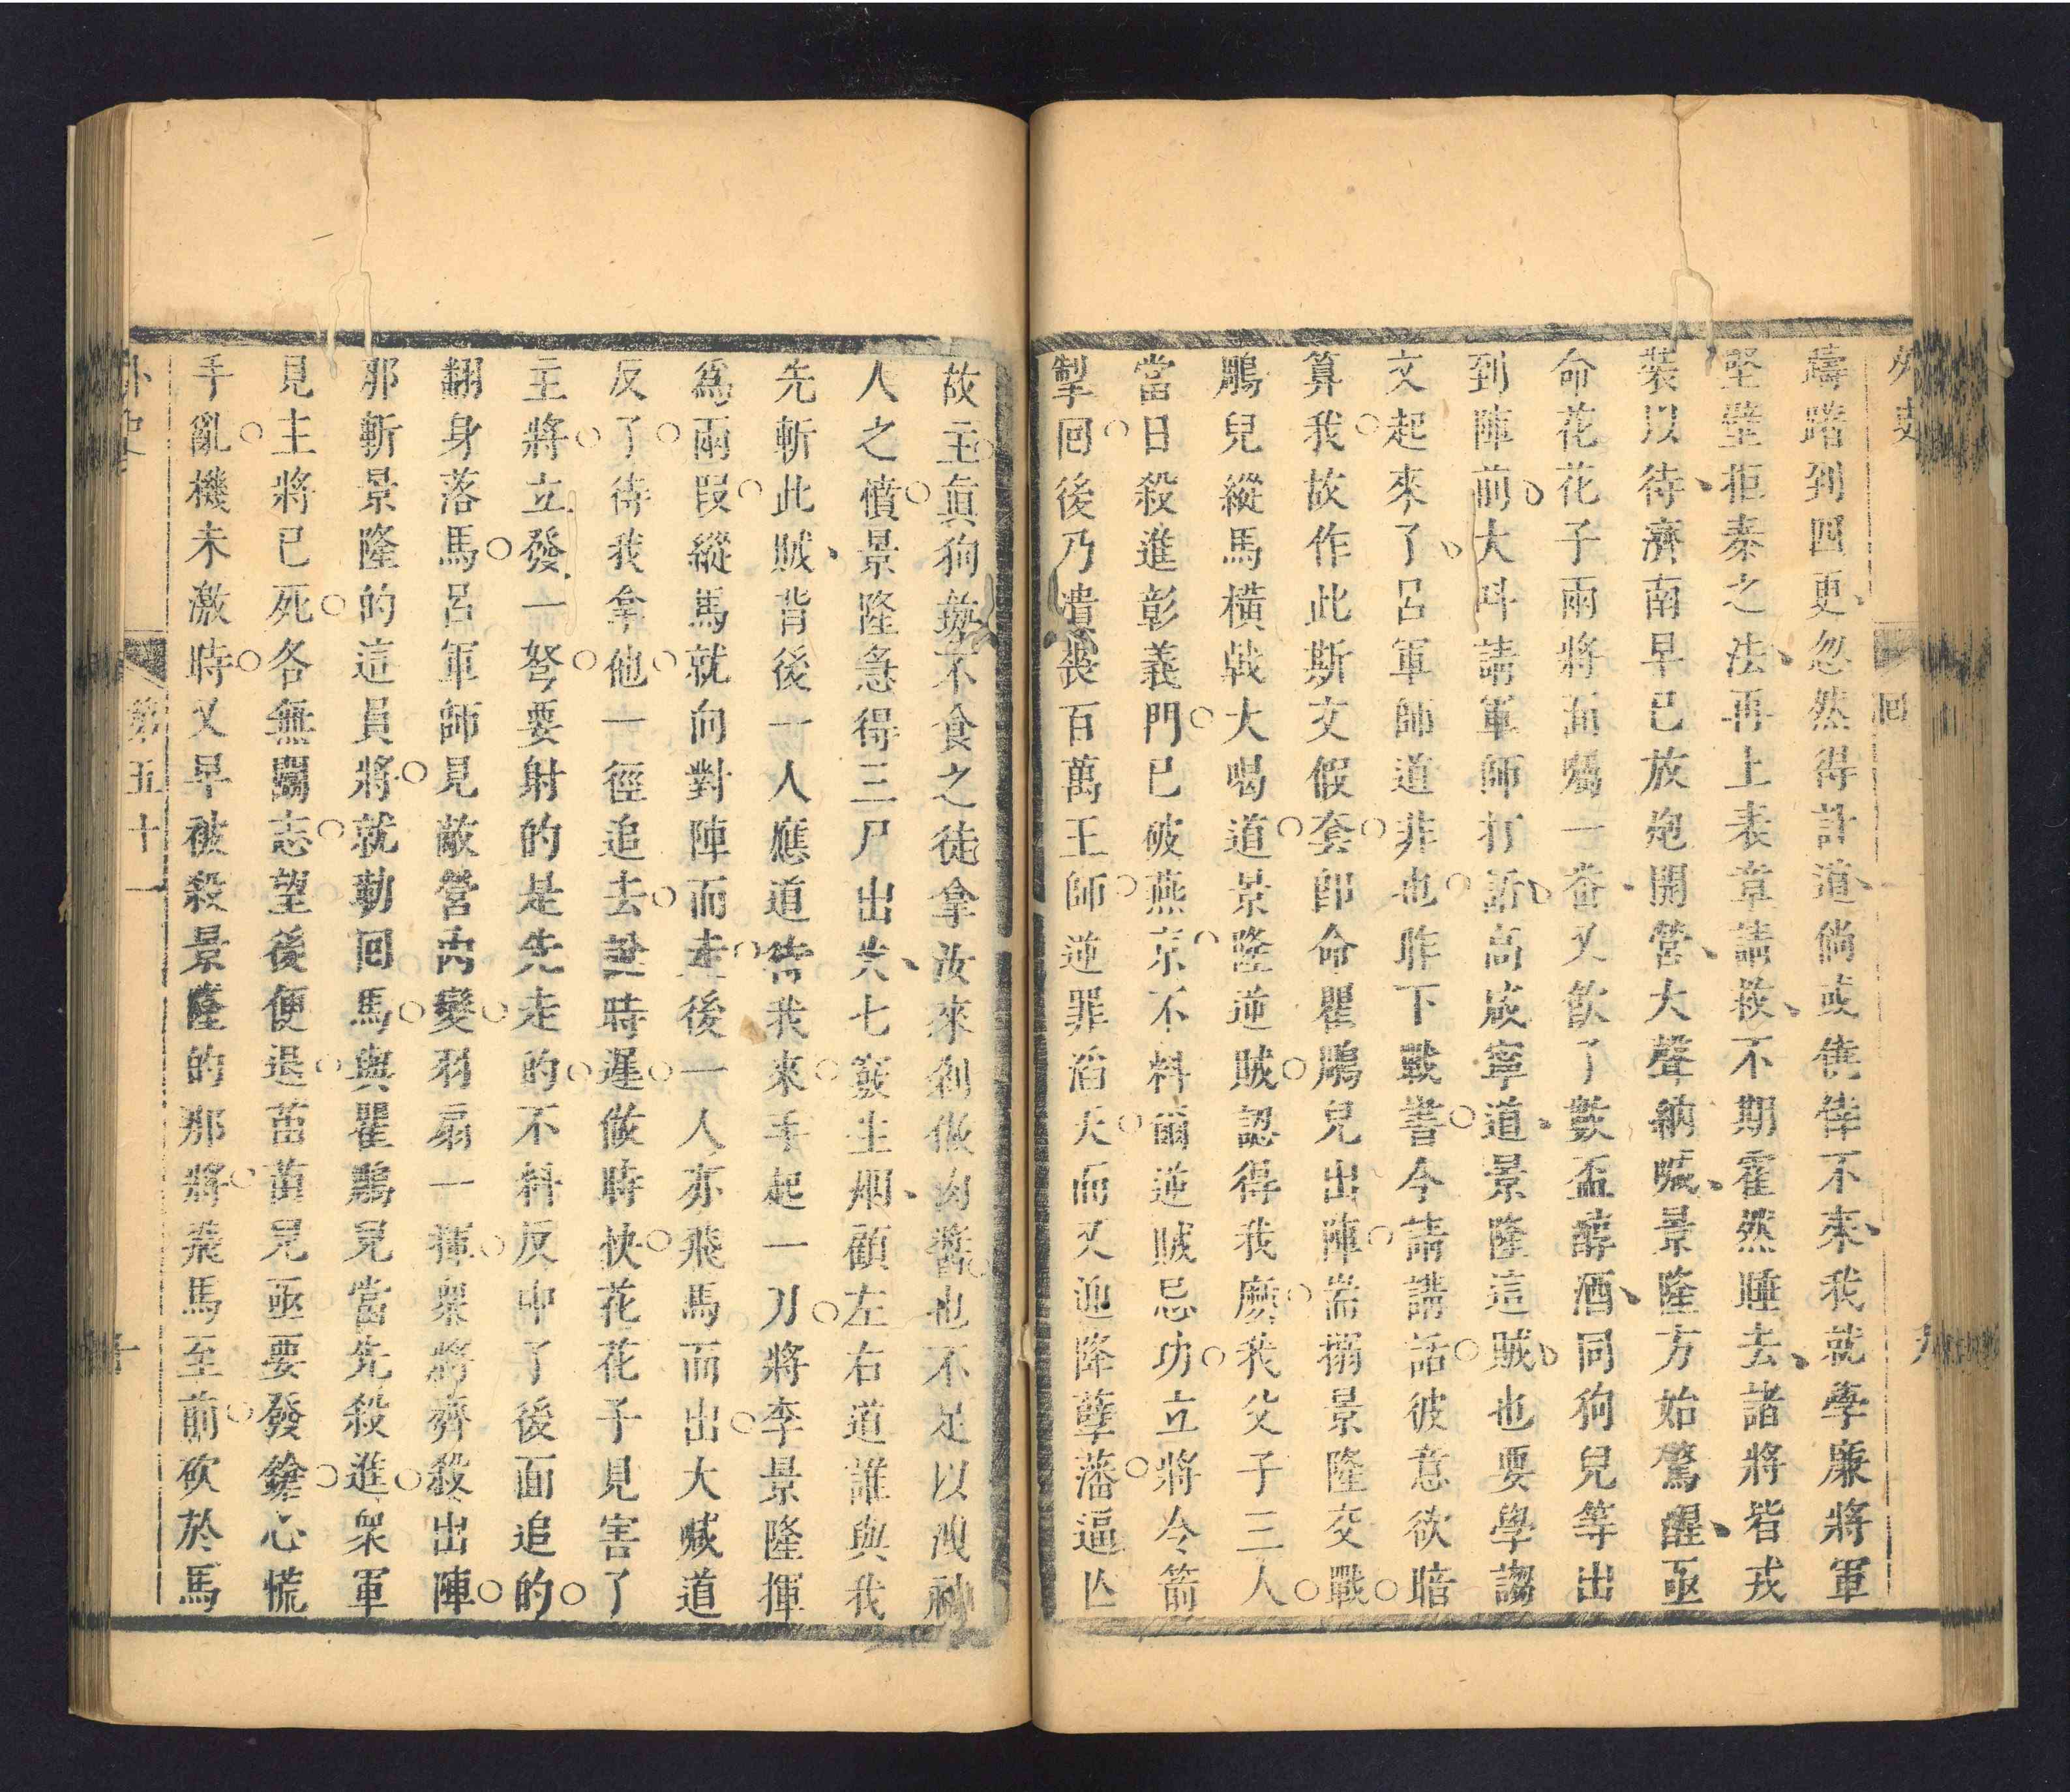 外史
回
九
躊躇到四更忽然得計道倘或僥倖不來我就學廉將軍
堅壁拒秦之法再上表章請救不期霍然睡去諸將皆戎
裝以待濟南早已放炮開營大聲納喊景隆方始驚醒亟
命花花子兩將面囑一番又飲了數盃醇酒同狗兒等出
到陣前大呌請軍師打話高咸寧道景隆這賊也要學謅
文起來了呂軍師道非也昨下戰書今請講話彼意欲暗
算我故作此斯文假套卽命瞿鵰兒出陣耑搦景隆交戰
鵰兒縱馬橫戟大喝道景隆逆賊認得我麽我父子三人
當日殺進彰義門已破燕京不料爾逆賊忌功立將令箭
掣回後乃潰喪百萬王師逆罪滔天而又迎降孽藩逼亾
故主眞狗彘不食之徒拿汝來剁做肉醬也不足以洩神
人之憤景隆急得三尸出失七竅生烟顧左右道誰與我
先斬此賊背後一人應道待我來手起一刀將李景隆揮
爲兩段縱馬就向對陣而走後一人亦飛馬而出大喊道
反了待我拿他一徑追去說時遲做時快花花子見害了
主將立發一弩要射的是先走的不料反中了後面追的
翻身落馬呂軍師見敵營內變羽扇一揮衆將齊殺出陣
那斬景隆的這員將就勒回馬與瞿鵰兒當先殺進衆軍
見主將已死各無鬭志望後便退苗苗兒亟要發鎗心慌
手亂機未激時又早被殺景隆的那將飛馬至前砍於馬
外史
第五十一
十